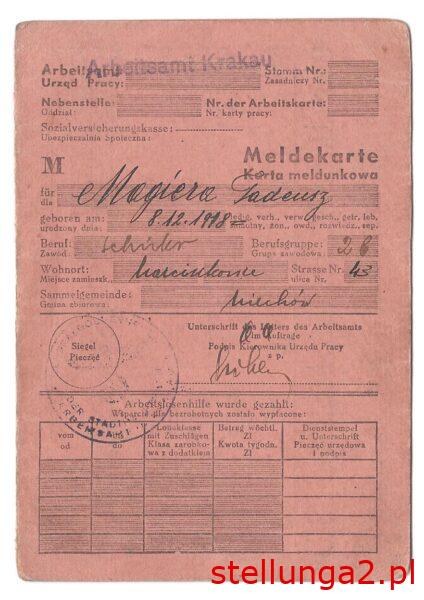 Arbeitsamt Krakau
Arbeitsamt Stamm Nr.:
Urząd Pracy: Zasadniczy Nr.:
Nebenstelle: Nr. der Arbeitskarte:
Oddział: Nr. karty pracy:
Sozialversicherungskasse:
Ubezpieczalnia Społeczna:
M Meldekarte
Karta meldunkowa
für Magiera Tadeusz
dla
geboren am: 8.12.1918 ledig, verh., verw., gesch., getr. leb.
urodzony dnia: żon., owd., rozwiedz., sep.
Beruf: Berufsgruppe: 28
Zawód: Grupa zawodowa:
Wohnort: Strasse Nr. 43
Miejsce zamieszk. ulica Nr.
Sammelgemeinde: Miechów
Gmina zbiorowa:
Unterschrift des Leiters des Arbeitsamts
Siegel Im Auftrage
Pieczęć Podpis Kierownika Urzędu Pracy
z p.
DER STADT
Arbeitslosenhilfe wurde gezahlt:
Wsparcie dla bezrobotnych zostało wypłacone:
vom
od
bis
do
Lohnklasse
mit Zuschlägen
Klasa zarobkowa
z dodatkiem
Betrag wöchtl.
Zl
Kwota tygodn.
Zl
Dienststempel
u. Unterschrift
Pieczęć urzędowa
i podpis
stellunga2.pl